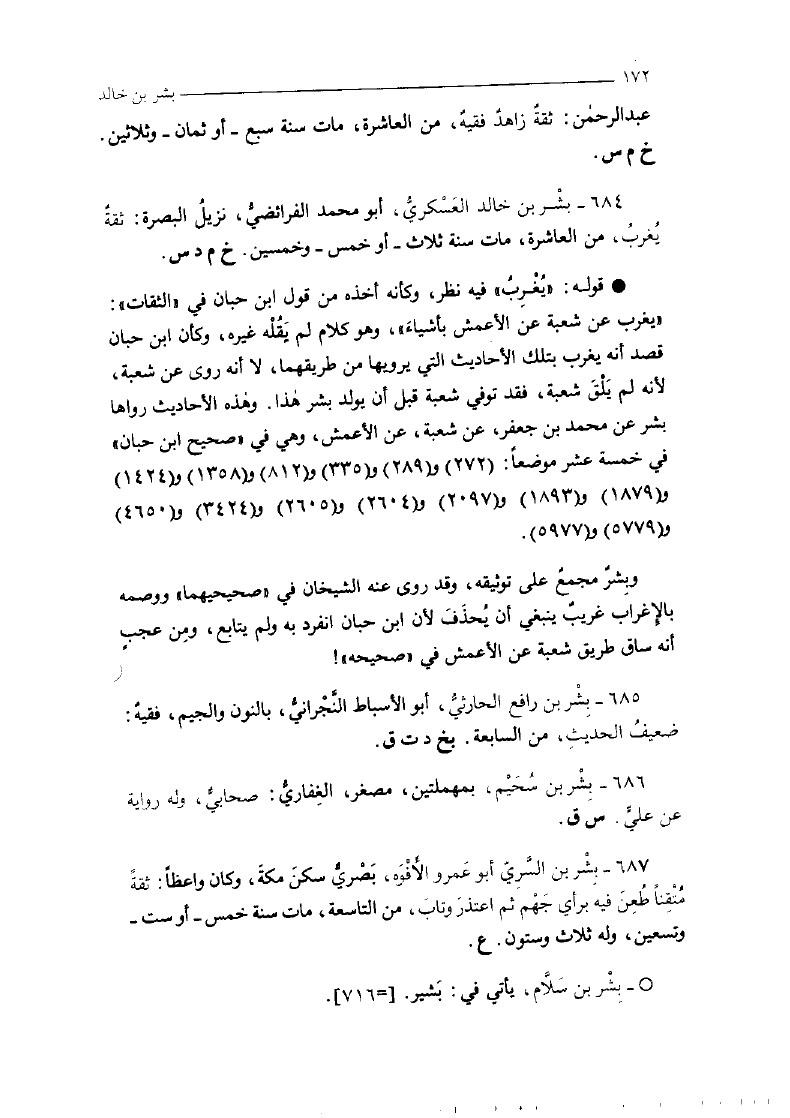 ١٧٢ بشر بن خالد
عبدالرحمٰن: ثقةٌ زاهدٌ فقيهٌ، من العاشرة، مات سنة سبع - أو ثمان - وثلاثين.
خ م س.
٦٨٤ - بِشْر بن خالد العَسْكريُّ، أبو محمد الفرائضيُّ، نزيلُ البصرة: ثقةٌ
يُغربُ، من العاشرة، مات سنة ثلاث - أو خمس - وخمسين. خ م د س.
● قوله: «يُغْرِبُ» فيه نظر، وكأنه أخذه من قول ابن حبان في «الثقات»:
«يغرب عن شعبة عن الأعمش بأشياء»، وهو كلام لم يَقُلْه غيره، وكأن ابن حبان
قصد أنه يغرب بتلك الأحاديث التي يرويها من طريقهما، لا أنه روى عن شعبة،
لأنه لم يَلْقَ شعبة، فقد توفي شعبة قبل أن يولد بشر هٰذا. وهٰذه الأحاديث رواها
بشر عن محمد بن جعفر، عن شعبة، عن الأعمش، وهي في «صحيح ابن حبان»
في خمسة عشر موضعاً: (٢٧٢) و(٢٨٩) و(٣٣٥) و(٨١٢) و(١٣٥٨) و(١٤٢٤)
و(١٨٧٩) و(١٨٩٣) و(٢٠٩٧) و(٢٦٠٤) و(٢٦٠٥) و(٣٤٢٤) و(٤٦٥٠)
و(٥٧٧٩) و(٥٩٧٧).
وبِشرٌ مجمعٌ على توثيقه، وقد روى عنه الشيخان في «صحيحيهما» ووصمه
بالإغراب غريبٌ ينبغي أن يُحذَفَ لأن ابن حبان انفرد به ولم يتابع، ومِن عجبٍ
أنه ساق طريق شعبة عن الأعمش في «صحيحه»!
٦٨٥ - بِشْر بن رافع الحارثيُّ، أبو الأسباط النَّجْرانيُّ، بالنون والجيم، فقيهٌ:
ضعيفُ الحديثِ، من السابعة. بخ د ت ق.
٦٨٦ - بِشْر بن سُحَيْم، بمهملتين، مصغر، الغِفاريُّ: صحابيٌّ، وله رواية
عن عليٍّ. س ق.
٦٨٧ - بِشْر بن السَّرِيّ أبو عَمرو الأَفْوَه، بَصْريٌّ سكنَ مكةَ، وكان واعظاً: ثقةً
مُتْقِناً طُعِنَ فيه برأي جَهْم ثم اعتذرَ وتابَ، من التاسعة، مات سنة خمس - أو ست -
وتسعين، وله ثلاث وستون. ع.
○ - بِشْر بن سَلَّام، يأتي في: بَشير. [=٧١٦].